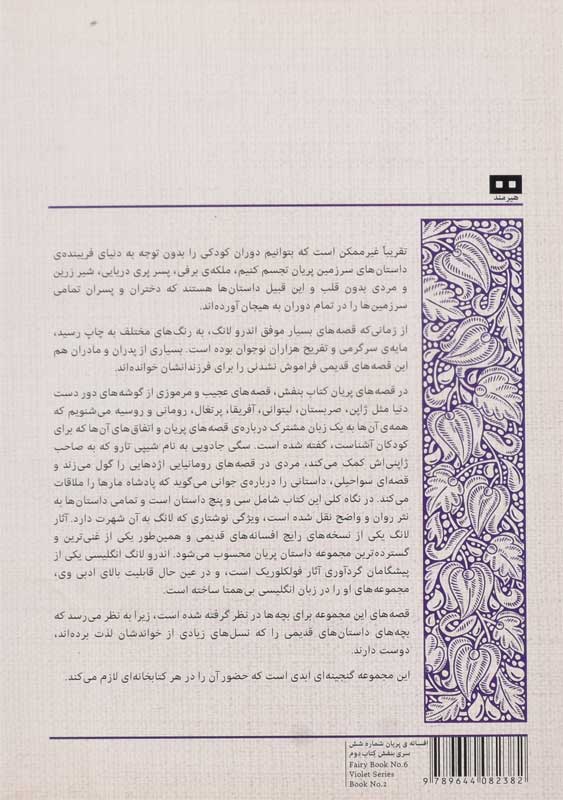 هیرمند
تقریباً غیرممکن است که بتوانیم دوران کودکی را بدون توجه به دنیای فریبنده‌ی
داستان‌های سرزمین پریان تجسم کنیم، ملکه‌ی برفی، پسر پری دریایی، شیر زرین
و مردی بدون قلب و این قبیل داستان‌ها هستند که دختران و پسران تمامی
سرزمین‌ها را در تمام دوران به هیجان آورده‌اند.
از زمانی‌که قصه‌های بسیار موفق اندرو لانگ، به رنگ‌های مختلف به چاپ رسید،
مایه‌ی سرگرمی و تفریح هزاران نوجوان بوده است. بسیاری از پدران و مادران هم
این قصه‌های قدیمی فراموش نشدنی را برای فرزندانشان خوانده‌اند.
در قصه‌های پریان کتاب بنفش، قصه‌های عجیب و مرموزی از گوشه‌های دور دست
دنیا مثل ژاپن، صربستان، لیتوانی، آفریقا، پرتغال، رومانی و روسیه می‌شنویم که
همه‌ی آن‌ها به یک زبان مشترک درباره‌ی قصه‌های پریان و اتفاق‌های آن‌ها که برای
کودکان آشناست، گفته شده است. سگی جادویی به نام شیپی تارو که به صاحب
ژاپنی‌اش کمک می‌کند، مردی در قصه‌های رومانیایی اژدهایی را گول می‌زند و
قصه‌ای سواحیلی، داستانی را درباره‌ی جوانی می‌گوید که پادشاه مارها را ملاقات
می‌کند. در نگاه کلی این کتاب شامل سی و پنج داستان است و تمامی داستان‌ها به
نثر روان و واضح نقل شده است، ویژگی نوشتاری که لانگ به آن شهرت دارد. آثار
لانگ یکی از نسخه‌های رایج افسانه‌های قدیمی و همین‌طور یکی از غنی‌ترین و
گسترده‌ترین مجموعه داستان پریان محسوب می‌شود. اندرو لانگ انگلیسی یکی از
پیشگامان گردآوری آثار فولکلوریک است، و در عین حال قابلیت بالای ادبی وی،
مجموعه‌های او را در زبان انگلیسی بی‌همتا ساخته است.
قصه‌های این مجموعه برای بچه‌ها در نظر گرفته شده است، زیرا به نظر می‌رسد که
بچه‌های داستان‌های قدیمی را که نسل‌های زیادی از خواندشان لذت برده‌اند،
دوست دارند.
این مجموعه گنجینه‌ای ابدی است که حضور آن را در هر کتابخانه‌ای لازم می‌کند.
افسانه ی پریان شماره شش
سری بنفش کتاب دوم
Fairy Book No.6
Violet Series
Book No.2
9 789644 082382